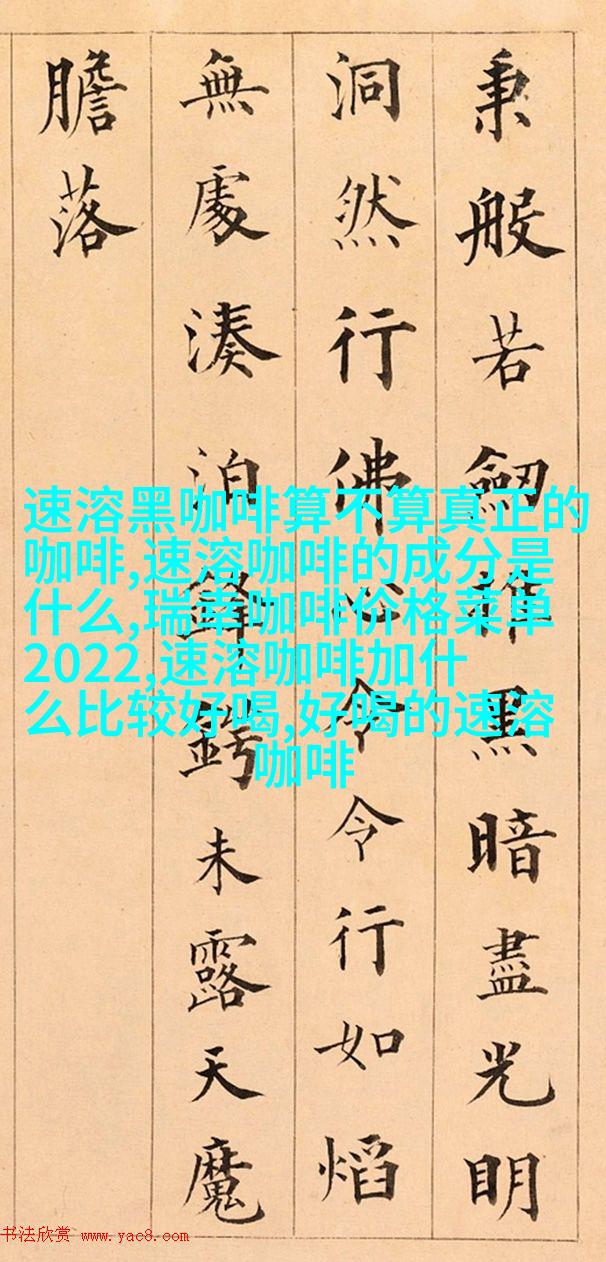 秉般若劔摧黑暗盡光明
洞然行佛心令令行如熖
無處湊泊鋒鍔未露天魔
膽落
速溶黑咖啡算不算真正的
咖啡,速溶咖啡的成分是
什么,瑞幸咖啡价格菜单
2022,速溶咖啡加什
么比较好喝,好喝的速溶
咖啡
书法欣赏 www.yac8.com